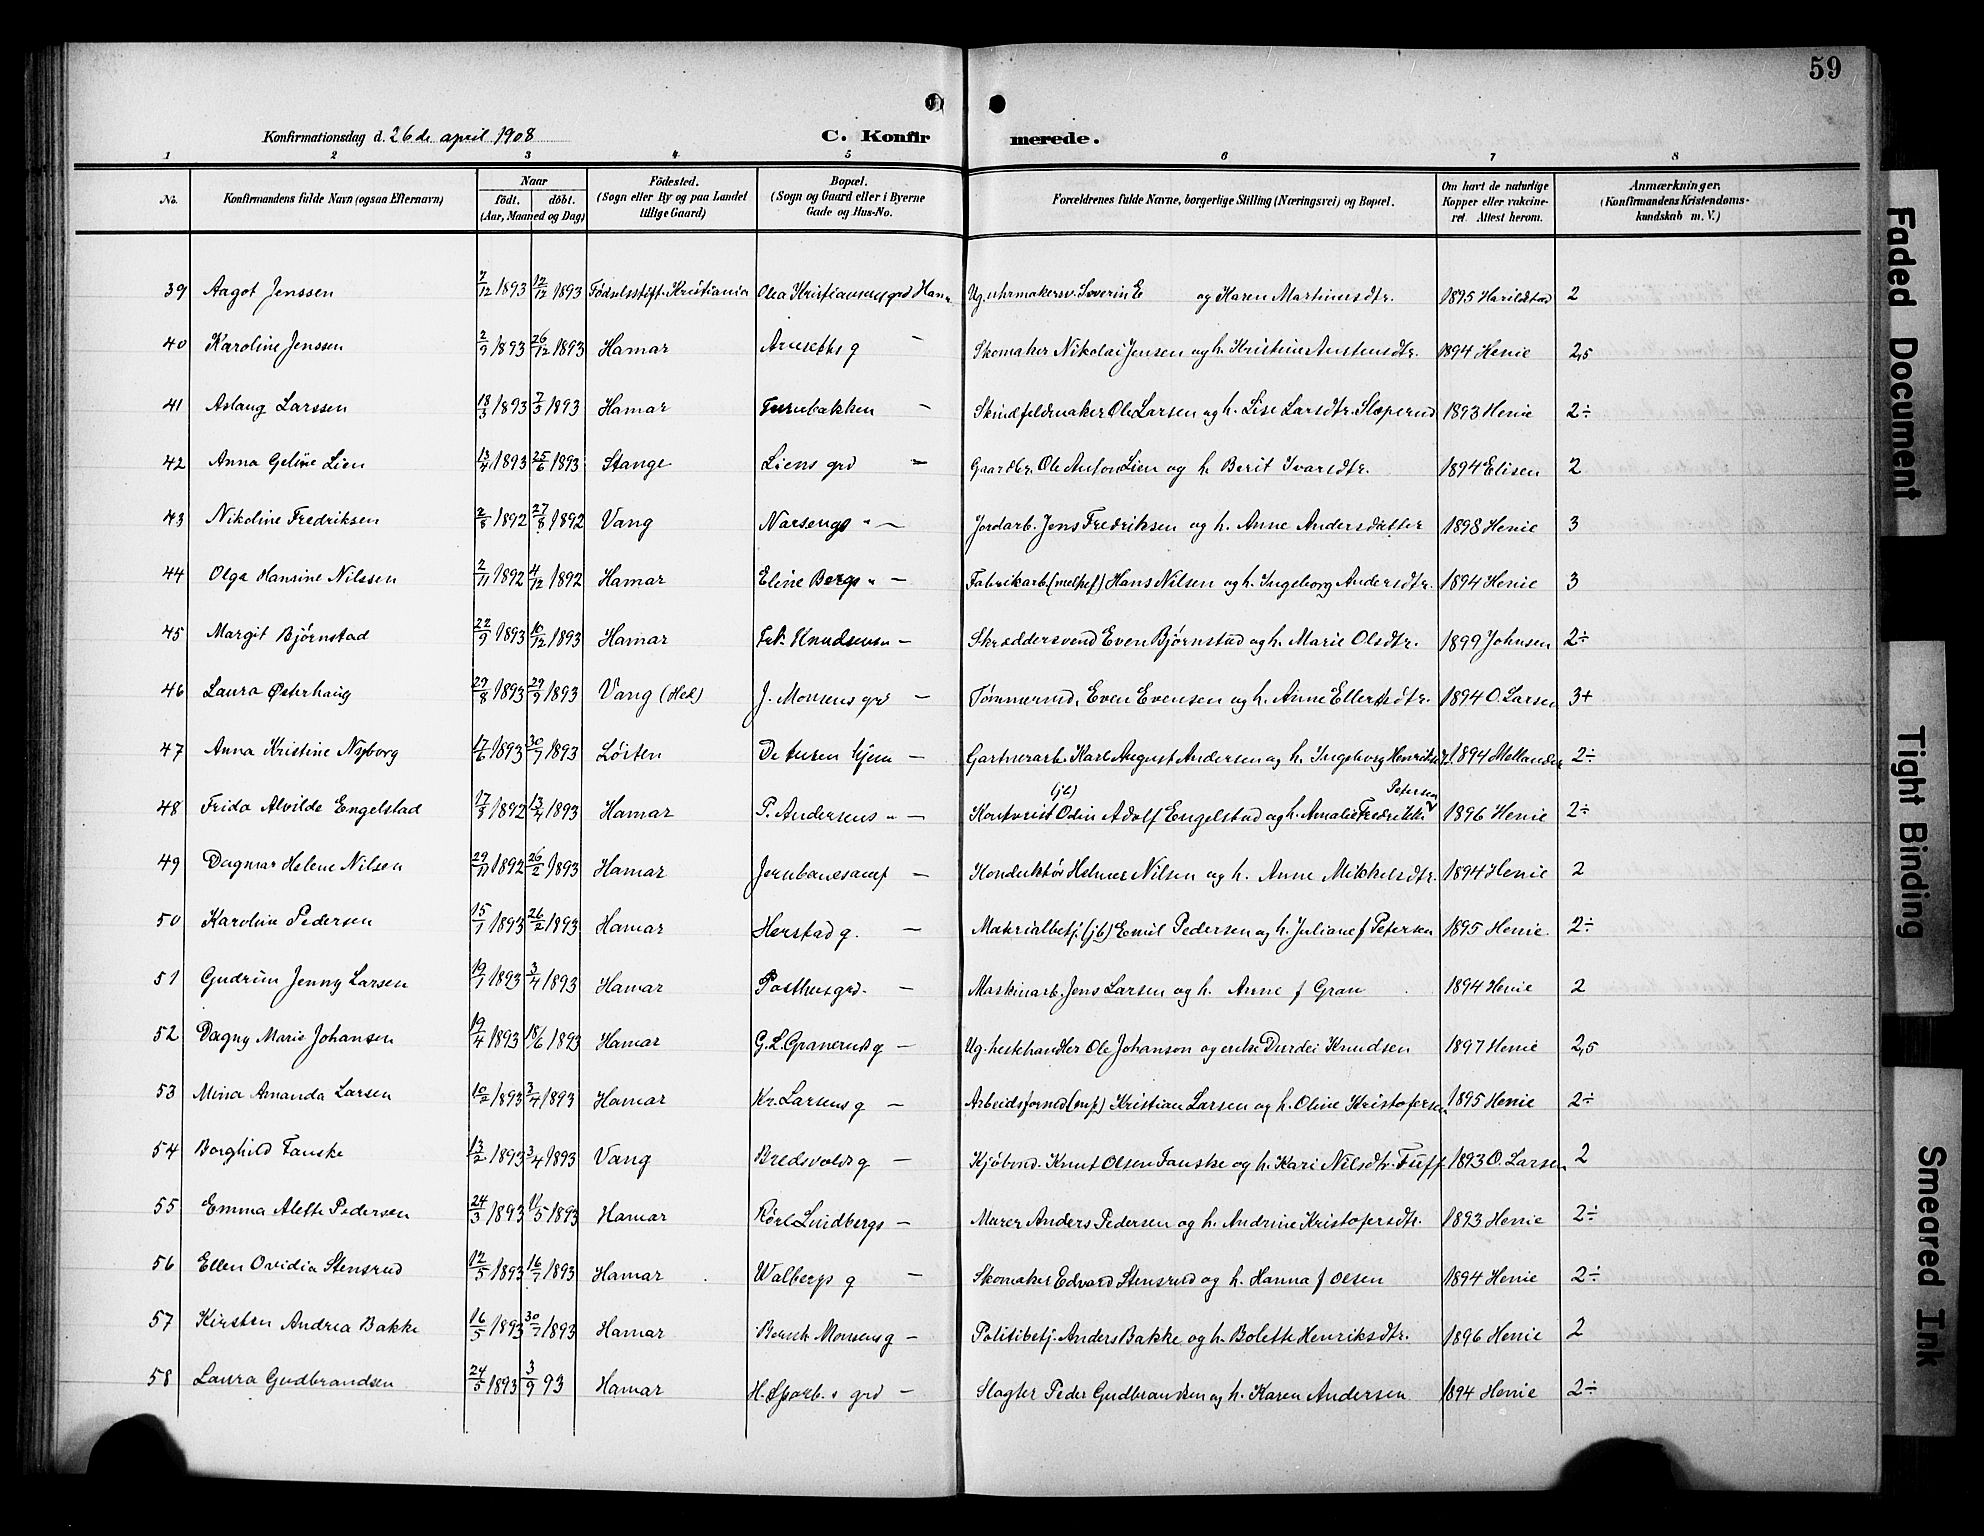 59
Konfirmationsdag d. 26de april 1908 C. Konfirmerede.
1 2 3 4 5 6 7 8
No. Konfirmandens fulde Navn (ogsaa Efternavn) Naar født. døbt. (Aar, Maaned og Dag) Fødested. (Sogn eller By og paa Landet tillige Gaard) Bopæl. (Sogn og Gaard eller i Byerne Gade og Hus-No. Forældrenes fulde Navne, borgerlige Stilling (Næringsvei) og Bopæl. Om havt de naturlige Kopper eller vakcineret. Attest herom. Anmærkninger. (Konfirmandens Kristendomskundskab m. V.)
39 Aagot Jenssen 7/12 1893 12/12 1893 Fødselsstift. Kristiania Olea Kristiansens grd Ug. uhrmakersv. Severin E og Karen Martinusdtr. 1895 2
40 Karoline Jenssen 2/9 1893 26/12 1893 Hamar g — Skomaker Nikolai Jensen og h. Kristine 1894 Henie 2,5
41 Aslaug Larssen 18/3 1893 7/3 1893 Hamar Furubakken — Skindfeldmaker Ole Larsen og h. Lise Larsdtr. Slæperud 1893 Henie 2÷
42 Anna Geline Lien 13/4 1893 25/6 1893 Stange Liens grd — Gaardbr. Ole Anton Lien og h. Berit Ivarsdtr. 1894 Elisen 2
43 Nikoline Fredriksen 2/8 1892 27/8 1892 Vang Narsengs " — Jordarb. Jens Fredriksen og h. Anne Andersdatter 1898 Henie 3
44 Olga Hansine Nilssen 2/11 1892 4/12 1892 Hamar Eline Bergs " — Fabrikarb. (melkef) Hans Nilsen og h. Ingeborg Andersdtr. 1894 Henie 3
45 Margit Bjørnstad 22/9 1893 10/12 1893 Hamar Frk. Knudsens — Skræddersvend Even Bjørnstad og h. Marie Olsdtr. 1899 Johnsen 2÷
46 Laura Østerhaug 29/8 1893 29/9 1893 Vang (Hed) J. Monsens grd — Tømmermd. Even Evensen og h. Anne Ellertsdtr. 1894 O. Larsen 3+
47 Anna Kristine Nyborg 17/6 1893 30/7 1893 Løiten De hjem — Gartnerarb. Karl August Andersen og h. Ingeborg Henriksd. 1894 Mellander 2÷
48 Frida Alvilde Engelstad 17/8 1892 13/4 1893 Hamar P. Andersens " — Kontorist (jb) Odin Adolf Engelstad og h. Amalie Fredrikke Petersen 1896 Henie 2÷
49 Dagmar Helene Nilsen 29/11 1892 26/2 1893 Hamar — Konduktør Helmer Nilsen og h. Anne Mikkelsdtr. 1894 Henie 2
50 Karoline Pedersen 15/1 1893 26/2 1893 Hamar Herstad g. — Materialbetj. (jb) Emil Pedersen og h. Juliane f Petersen 1895 Henie. 2÷
51 Gudrun Jenny Larsen 19/1 1893 3/4 1893 Hamar Posthusgrd. — Maskinarb. Jens Larsen og h. Anne f Gran 1894 Henie 2
52 Dagny Marie Johansen 19/4 1893 18/6 1893 Hamar G. L. Graneruds g — Ug. hestehandler Ole Johanson og enke Durdei Knudsen 1897 Henie 2,5
53 Mina Amanda Larsen 10/2 1893 3/4 1893 Hamar Kr. Larsens g — Arbeidsformd Kristian Larsen og h. Oline Kristofersen 1895 Henie 2÷
54 Borghild Fauske 13/2 1893 3/4 1893 Vang Bredsvolds g — Kjøbmd. Knut Olsen Fauske og h. Kari Nilsdtr. Tuff 1893 O. Larsen 2
55 Emma Alette Pedersen 24/3 1893 11/5 1893 Hamar Rørl. Lindbergs — Murer Anders Pedersen og h. Andrine Kristofersdtr. 1893 Henie 2÷
56 Ellen Ovidia Stensrud 12/5 1893 16/7 1893 Hamar Walbergs g — Skomaker Edvard Stensrud og h. Hanna f Olsen 1894 Henie 2÷
57 Kirsten Andrea Bakke 16/5 1893 30/7 1893 Hamar Bersch Monsens g — Politibetj. Anders Bakke og h. Bolette Henriksdtr. 1896 Henie 2
58 Laura Gudbrandsen 24/5 1893 3/9 93 Hamar grd — Slagter Peder Gudbrandsen og h. Karen Andersen 1894 Henie 2÷
Faded Document
Tight Binding
Smeared Ink